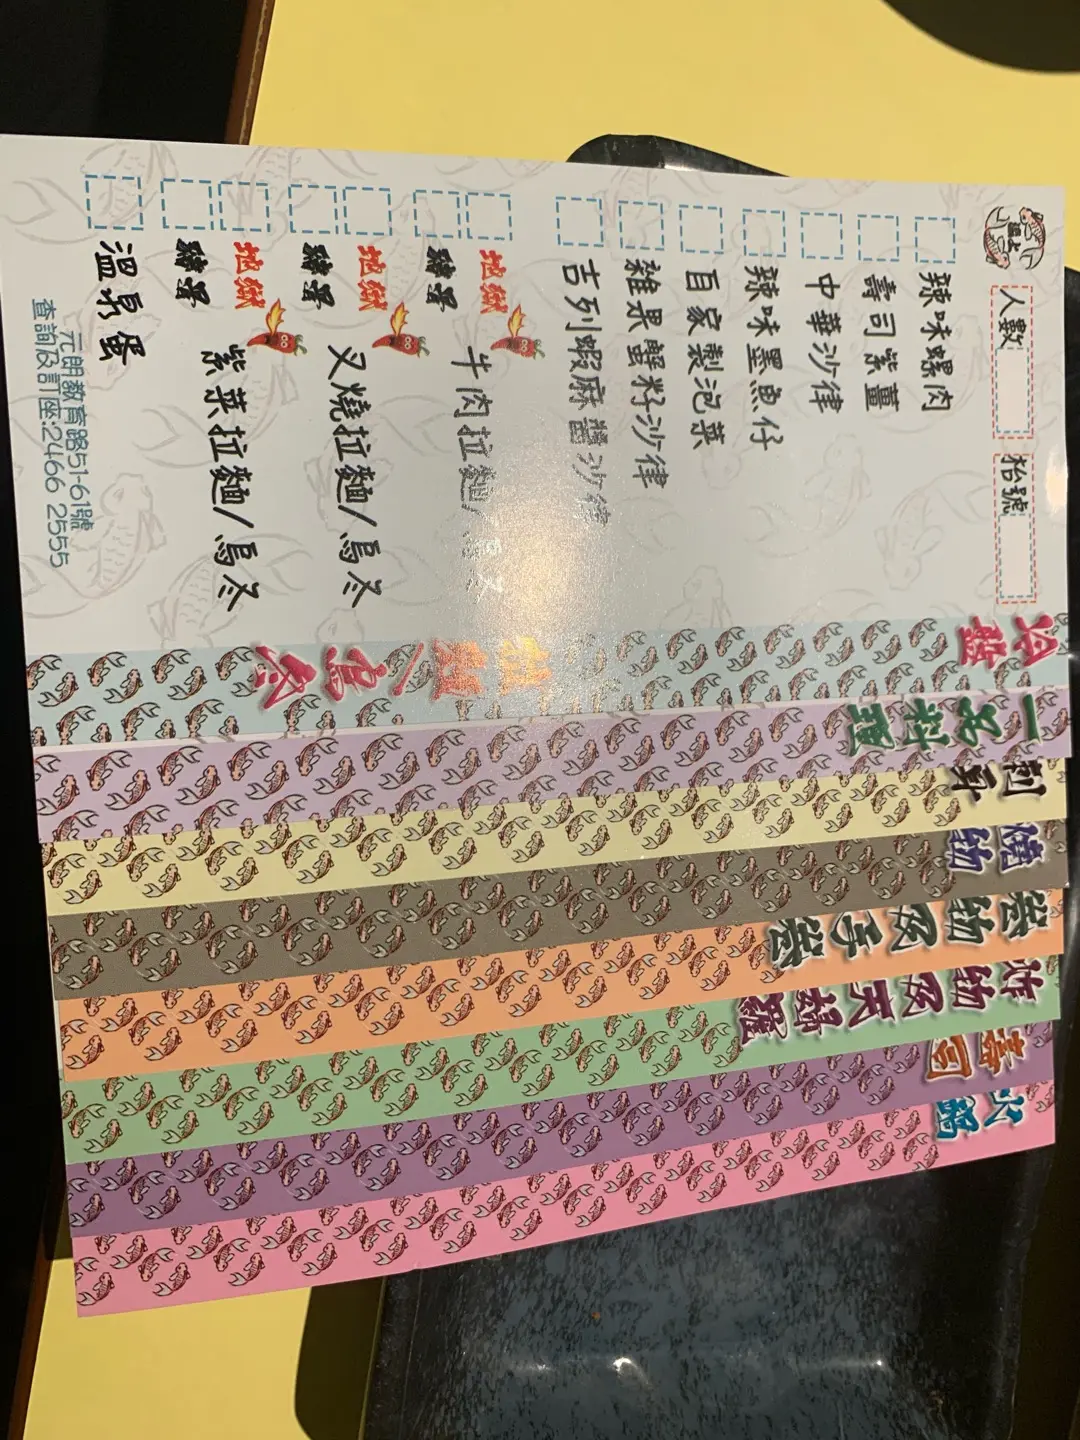 組上
人數
枱號
冷盤
辣味螺肉
壽司紫薑
中華沙律
辣味墨魚仔
百家製泡菜
雜果蟹籽沙律
吉列蝦麻醬沙律
拉麵/烏冬
地獄 牛肉拉麵/烏冬
豬骨
地獄 叉燒拉麵/烏冬
豬骨
地獄 紫菜拉麵/烏冬
豬骨
溫泉蛋
元朗教育路51-61號
查詢及訂座:2466 2555
一品料理
刺身
燒物
卷物及手卷
炸物及天婦羅
壽司
火鍋